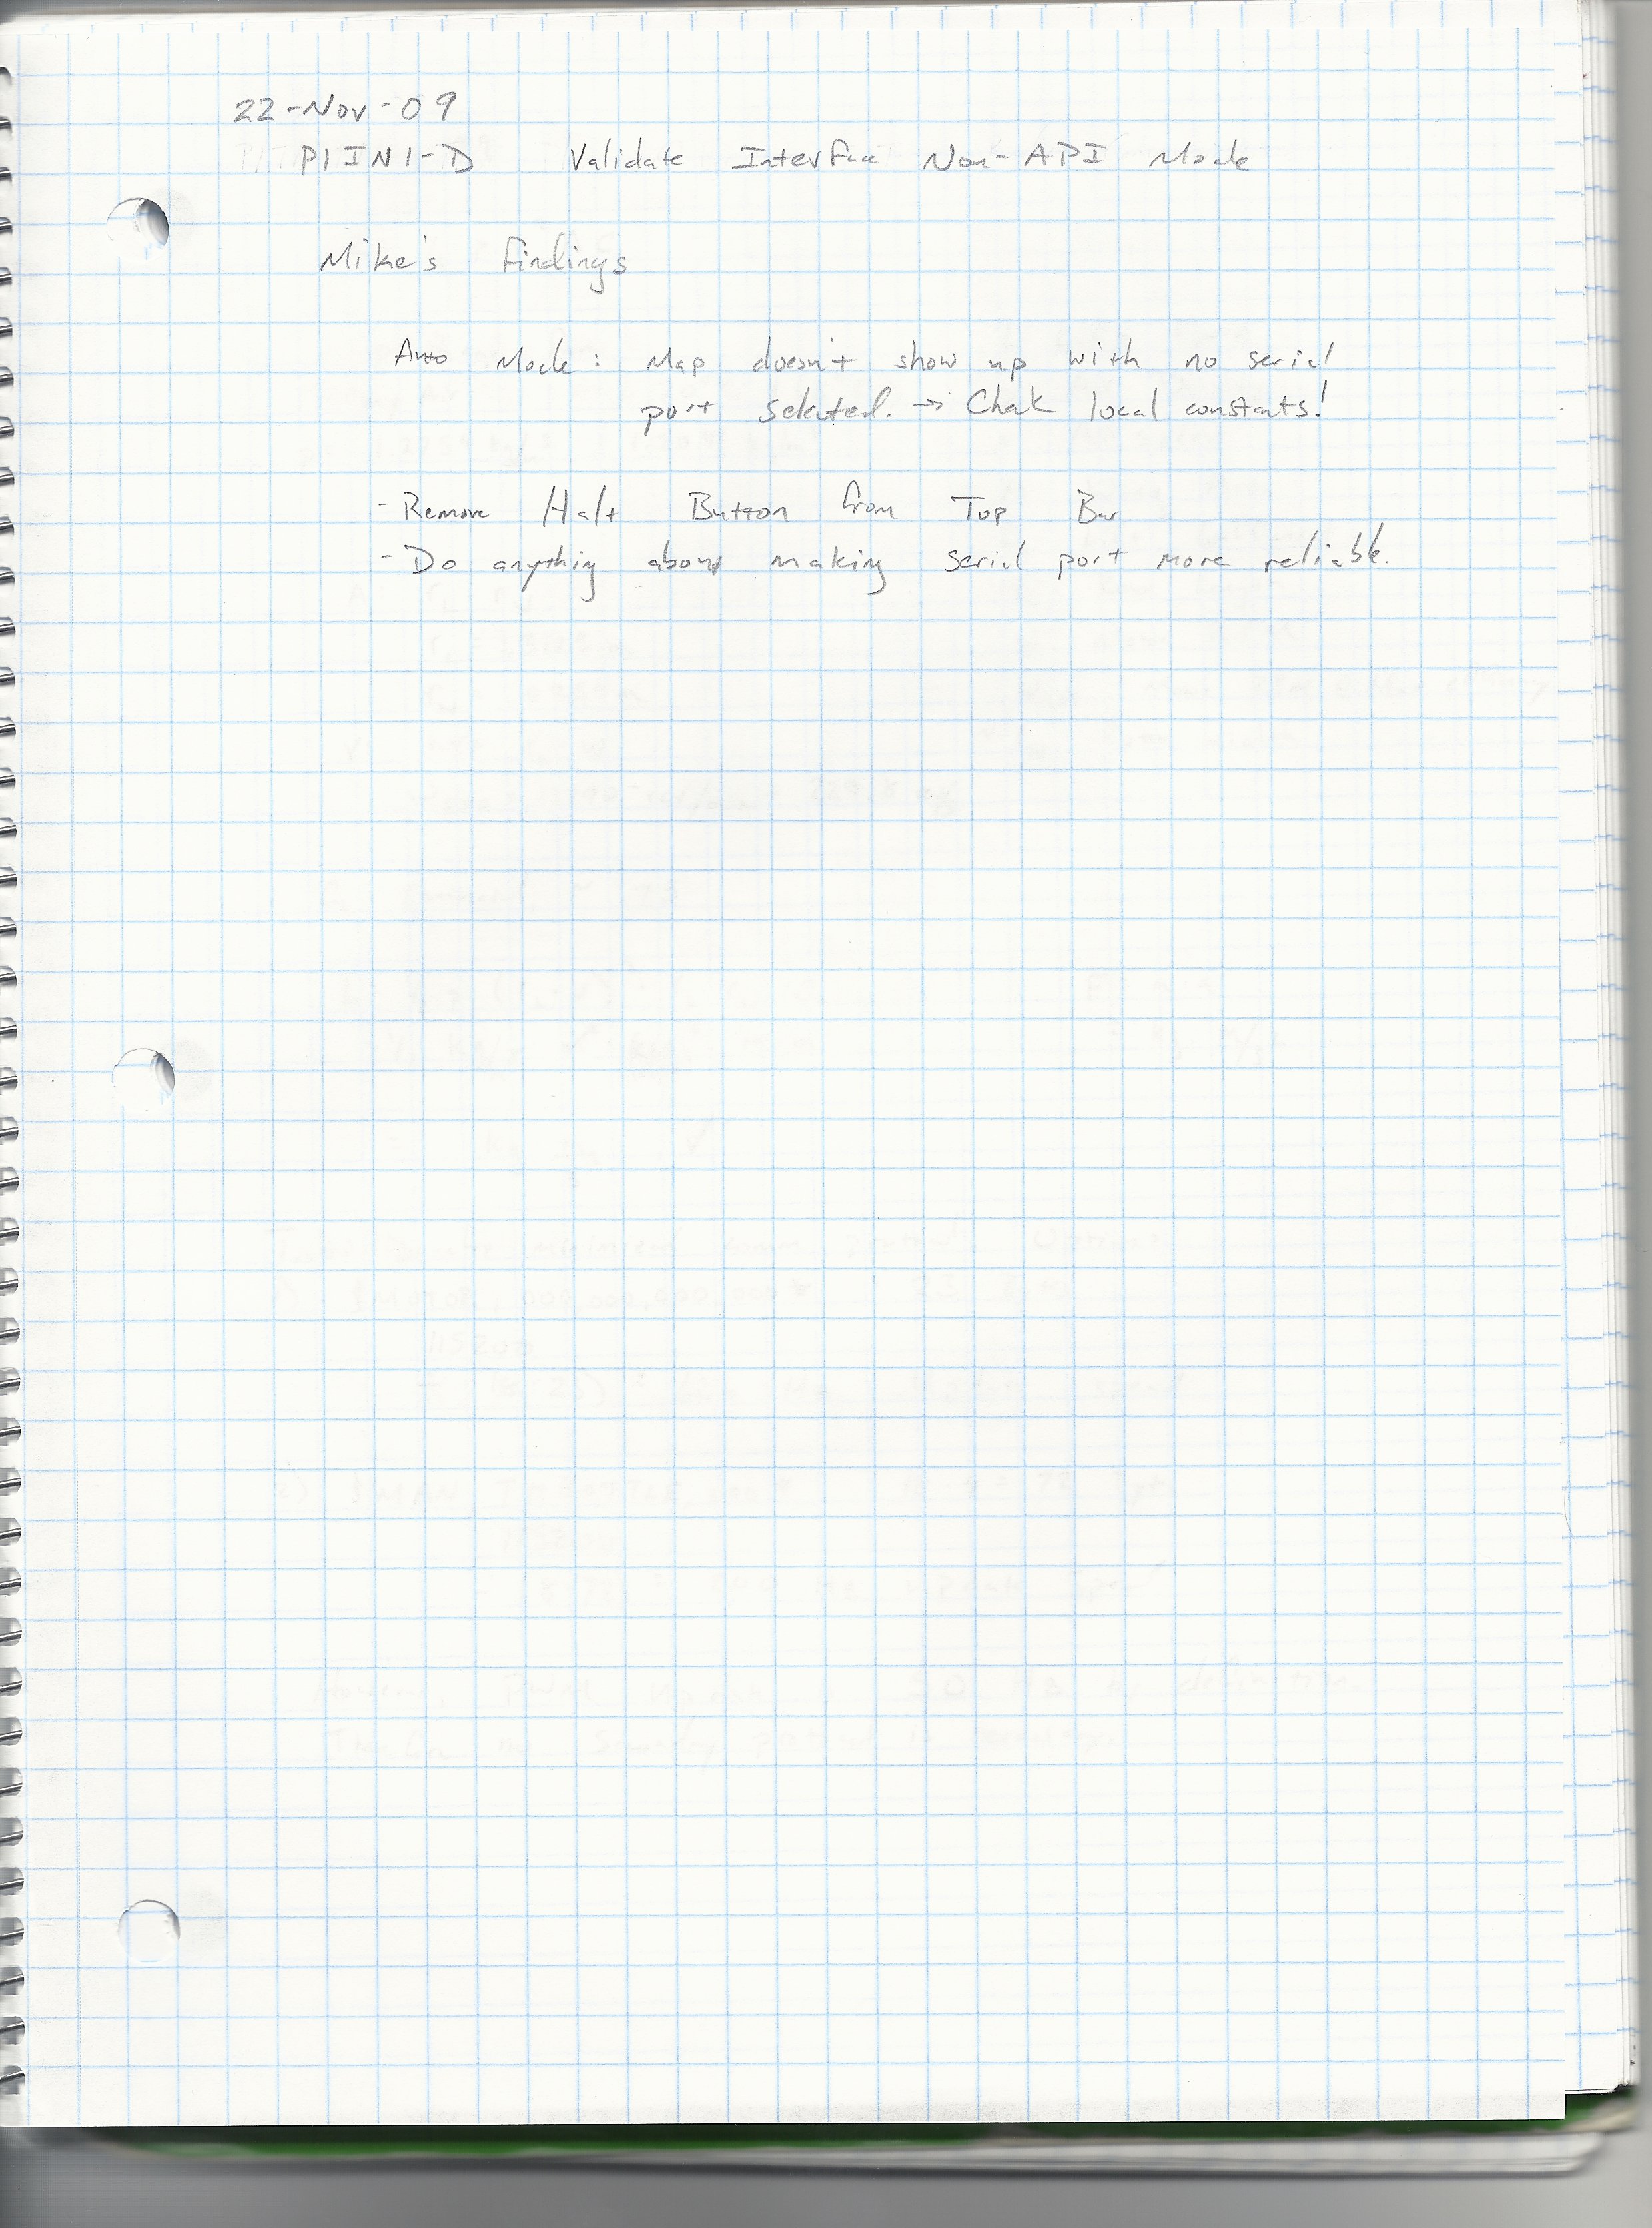 22-Nov-09
P1IN1-D Validate Interface Non-API Mode
Mike's findings
Auto Mode: Map doesn't show up with no serial
port selected. → Check local constants!
- Remove Halt Button from Top Bar
- Do anything about making serial port more reliable.